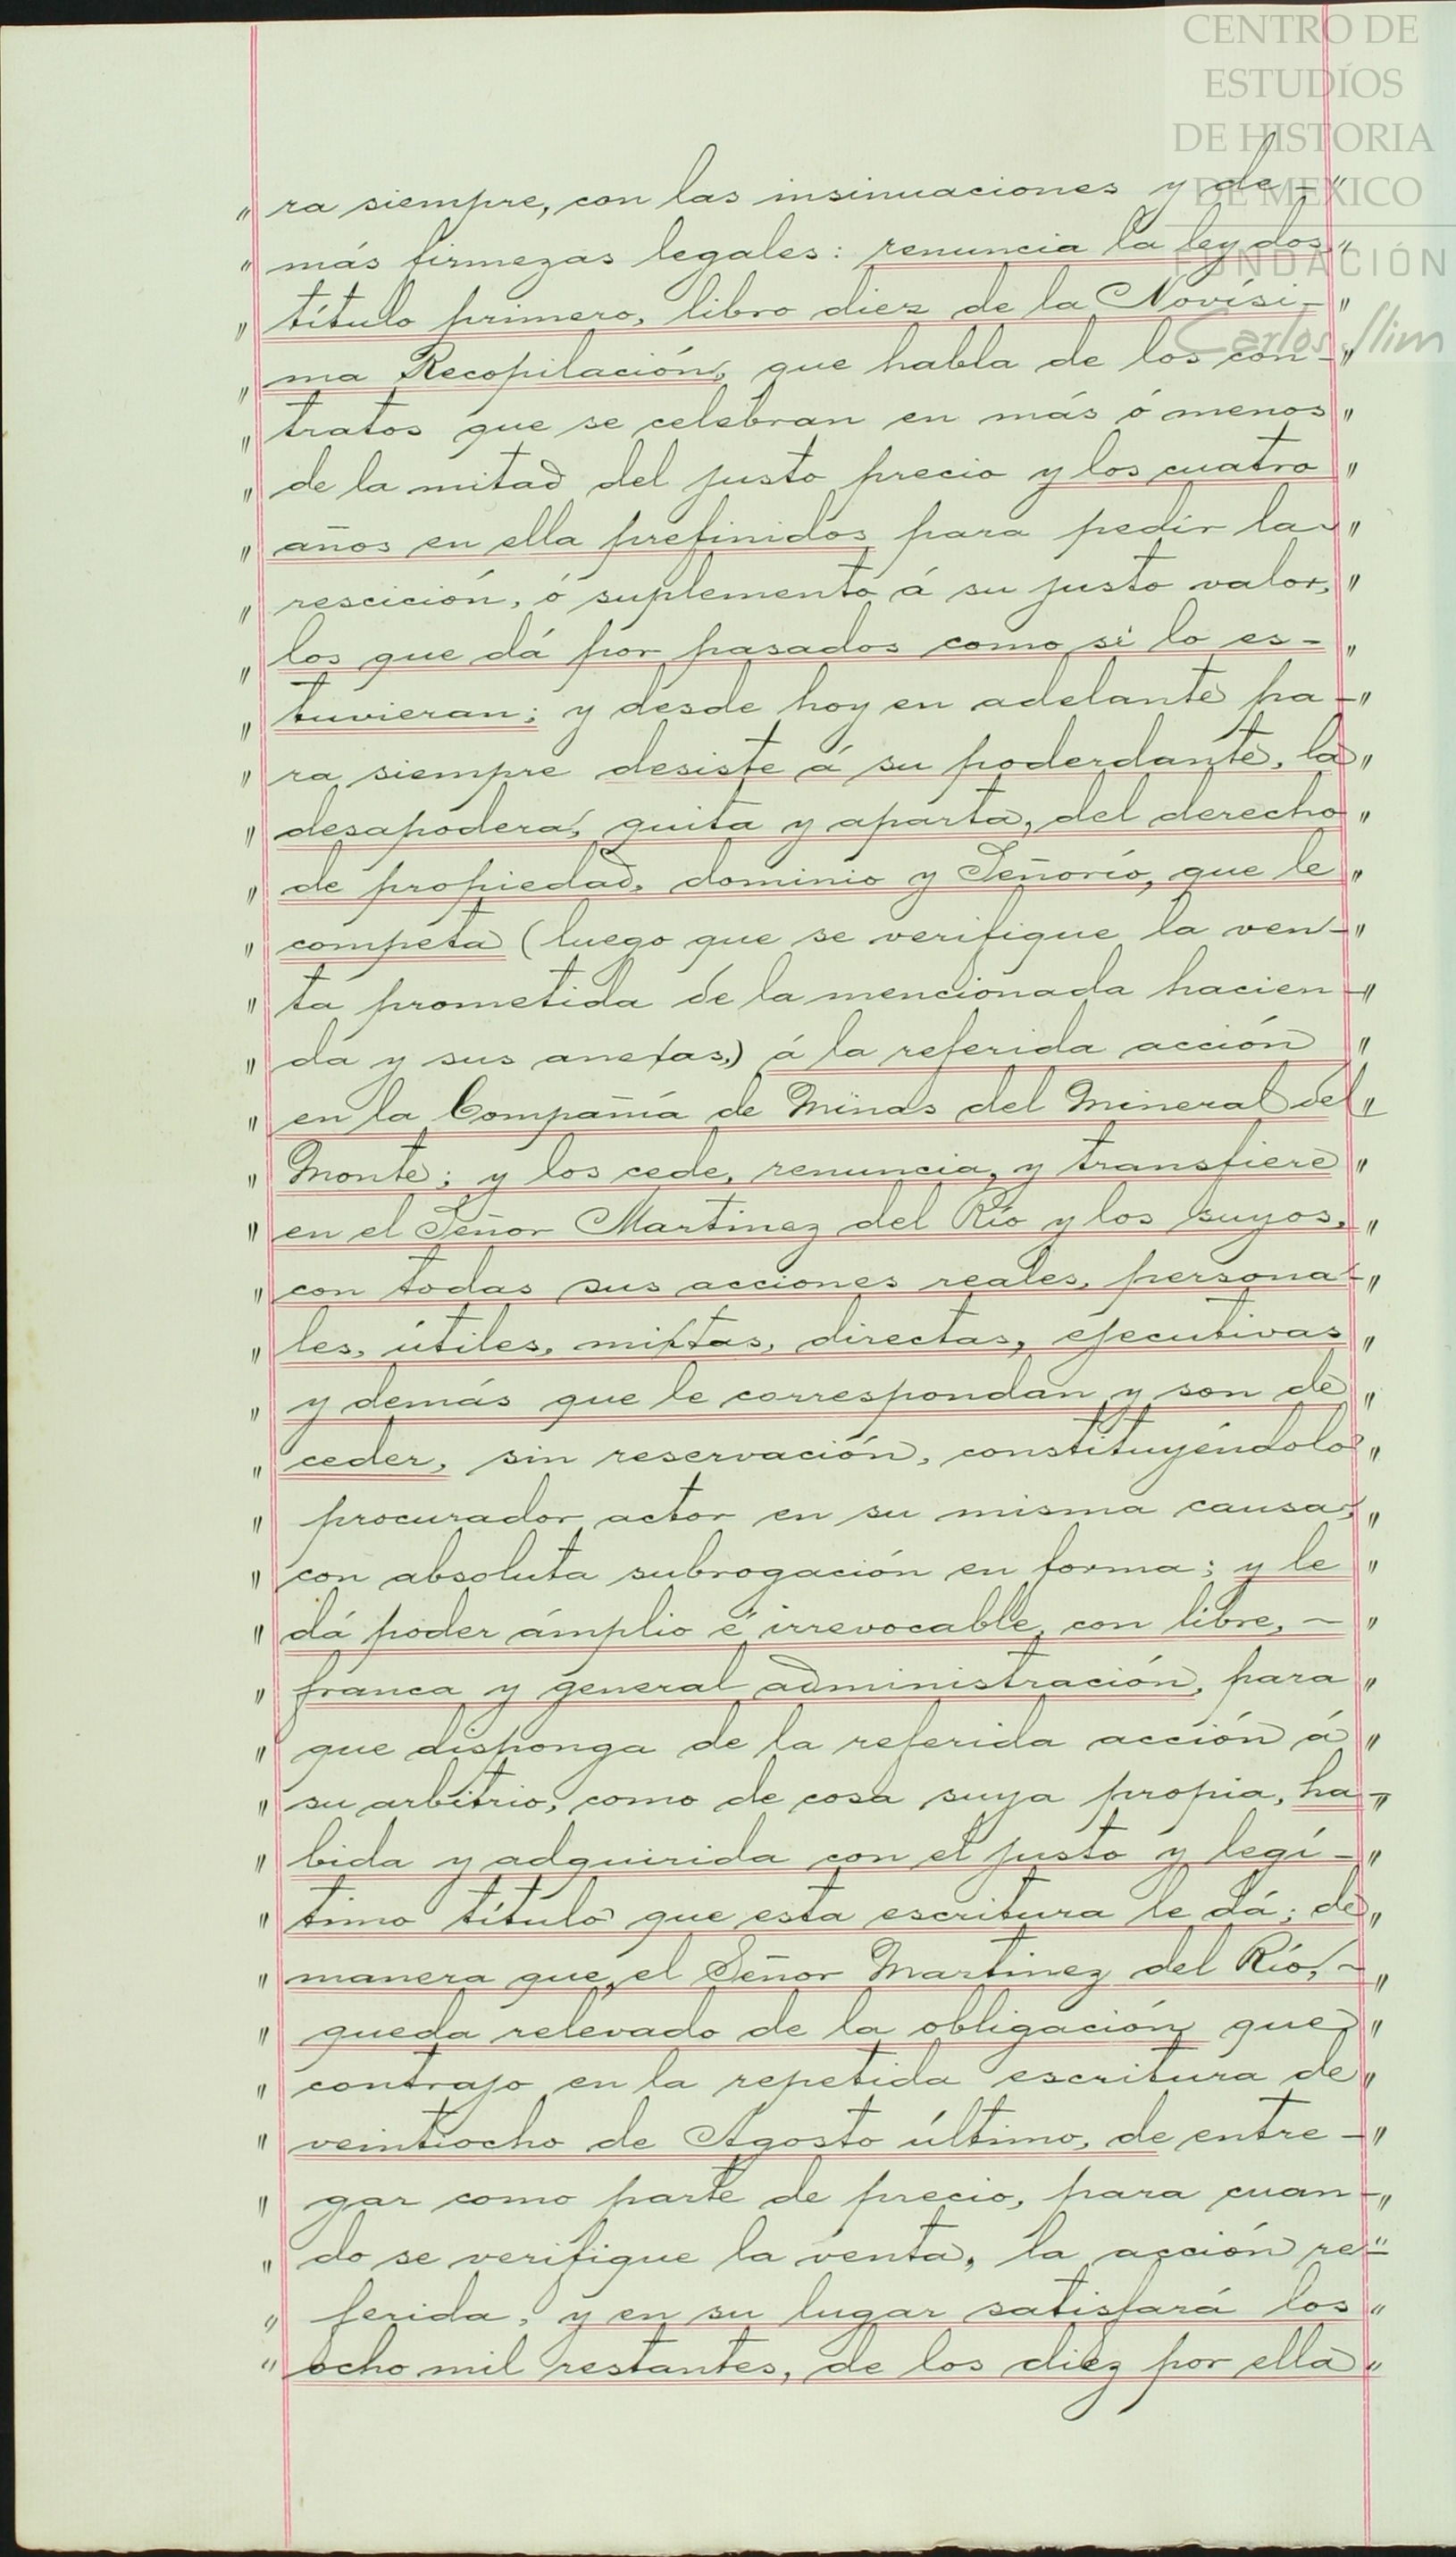 CENTRO DE
ESTUDIOS
DE HISTORIA
DE MEXICO
FUNDACIÓN
Carlos Slim
" ra siempre, con las insinuaciones y de- "
" más firmezas legales: renuncia la ley dos, "
" título primero, libro diez de la Novísi- "
" ma Recopilación, que habla de los con- "
" tratos que se celebran en más ó menos "
" de la mitad del justo precio y los cuatro "
" años en ella prefinidos para pedir la "
" rescición, ó suplemento á su justo valor, "
" los que dá por pasados como si lo es- "
" tuvieran; y desde hoy en adelante pa- "
" ra siempre desiste á su poderdante, la "
" desapodera, quita y aparta, del derecho "
" de propiedad, dominio y Señorío, que le "
" competa (luego que se verifique la ven- "
" ta prometida de la mencionada hacien- "
" da y sus anexas,) á la referida acción "
" en la Compañía de Minas del Mineral del "
" Monte; y los cede, renuncia, y transfiere "
" en el Señor Martinez del Río y los suyos, "
" con todas sus acciones reales, persona- "
" les, útiles, mixtas, directas, ejecutivas "
" y demás que le correspondan y son de "
" ceder, sin reservación, constituyéndolo "
" procurador actor en su misma causa, "
" con absoluta subrogación en forma; y le "
" dá poder ámplio é irrevocable, con libre, - "
" franca y general administración, para "
" que disponga de la referida acción á "
" su arbitrio, como de cosa suya propia, ha- "
" bida y adquirida con el justo y legí- "
" timo título que esta escritura le dá; de "
" manera que, el Señor Martinez del Río, - "
" queda relevado de la obligación que "
" contrajo en la repetida escritura de "
" veintiocho de Agosto último, de entre- "
" gar como parte de precio, para cuan- "
" do se verifique la venta, la acción re- "
" ferida, y en su lugar satisfará los "
" ocho mil restantes, de los diez por ella "